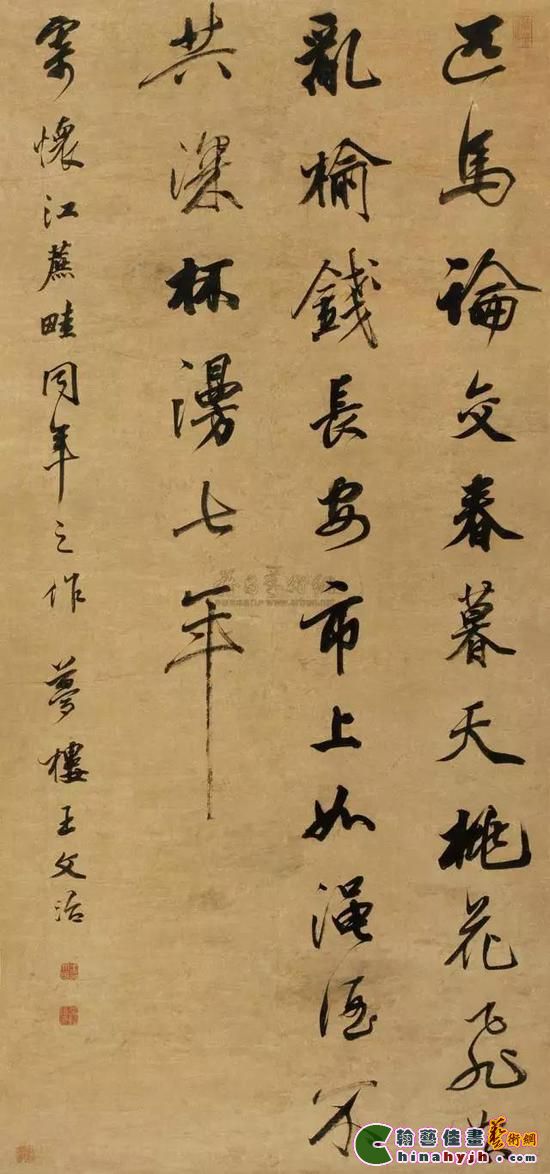 匹馬論交春暮天桃花飛
亂榆錢長安市上如澠酒不
共深杯漫七年
寄懷江蔗畦同年之作 夢樓王文治
翰藝佳畫藝術網
Chinahyjh.com